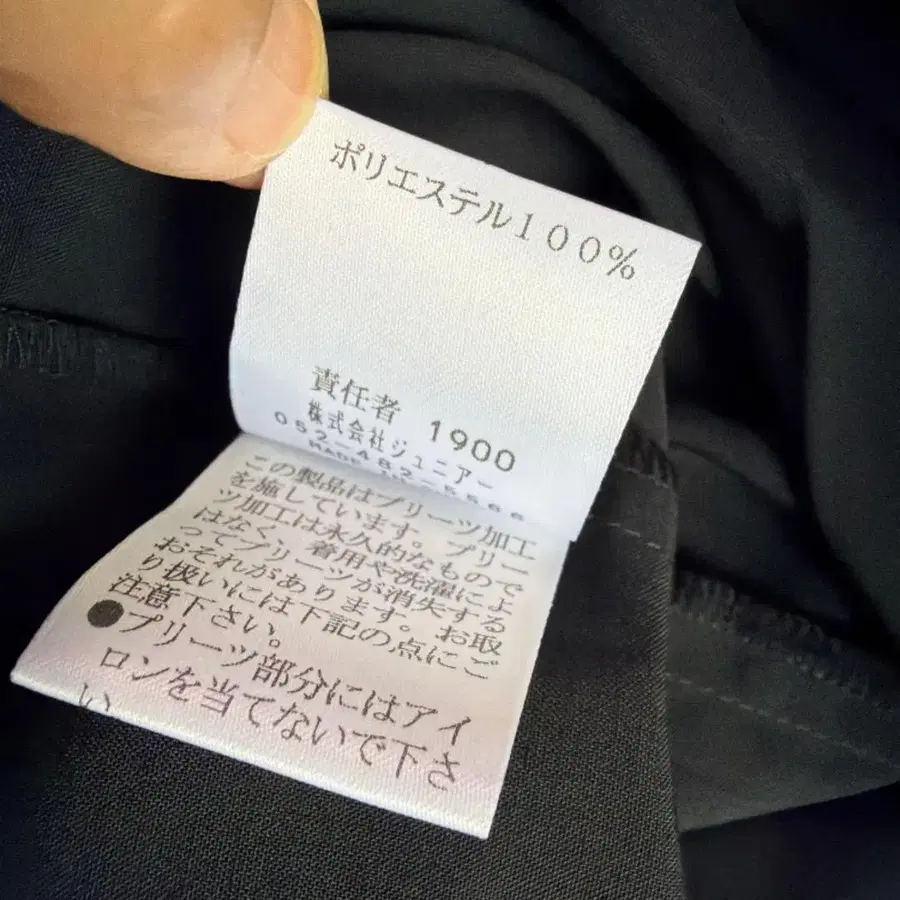 ポリエステル100%
責任者 1900
株式会社ジュニアー
052-482-5566
MADE IN
この製品はプリーツ加工
を施しています。プリー
ツ加工は永久的なもので
はなく、着用や洗濯によ
ってプリーツが消失する
おそれがあります。お取
り扱いには下記の点にご
注意下さい。
●プリーツ部分にはアイ
ロンを当てないで下さ
い